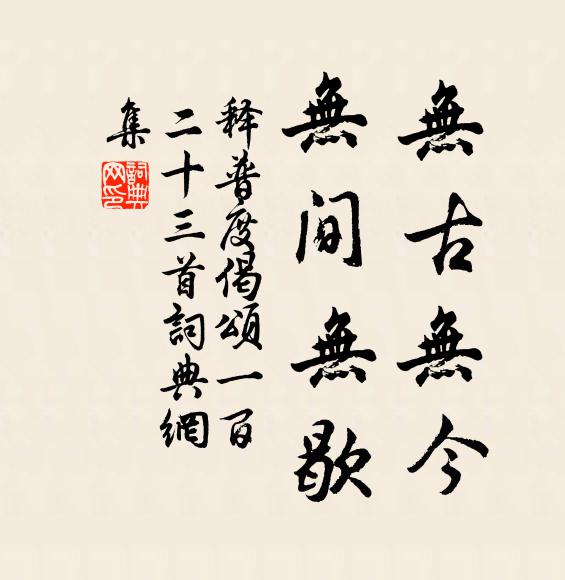 無古無今
無間無歇
释普度偈頌一百
二十三首詞典網
集
詞典
网印